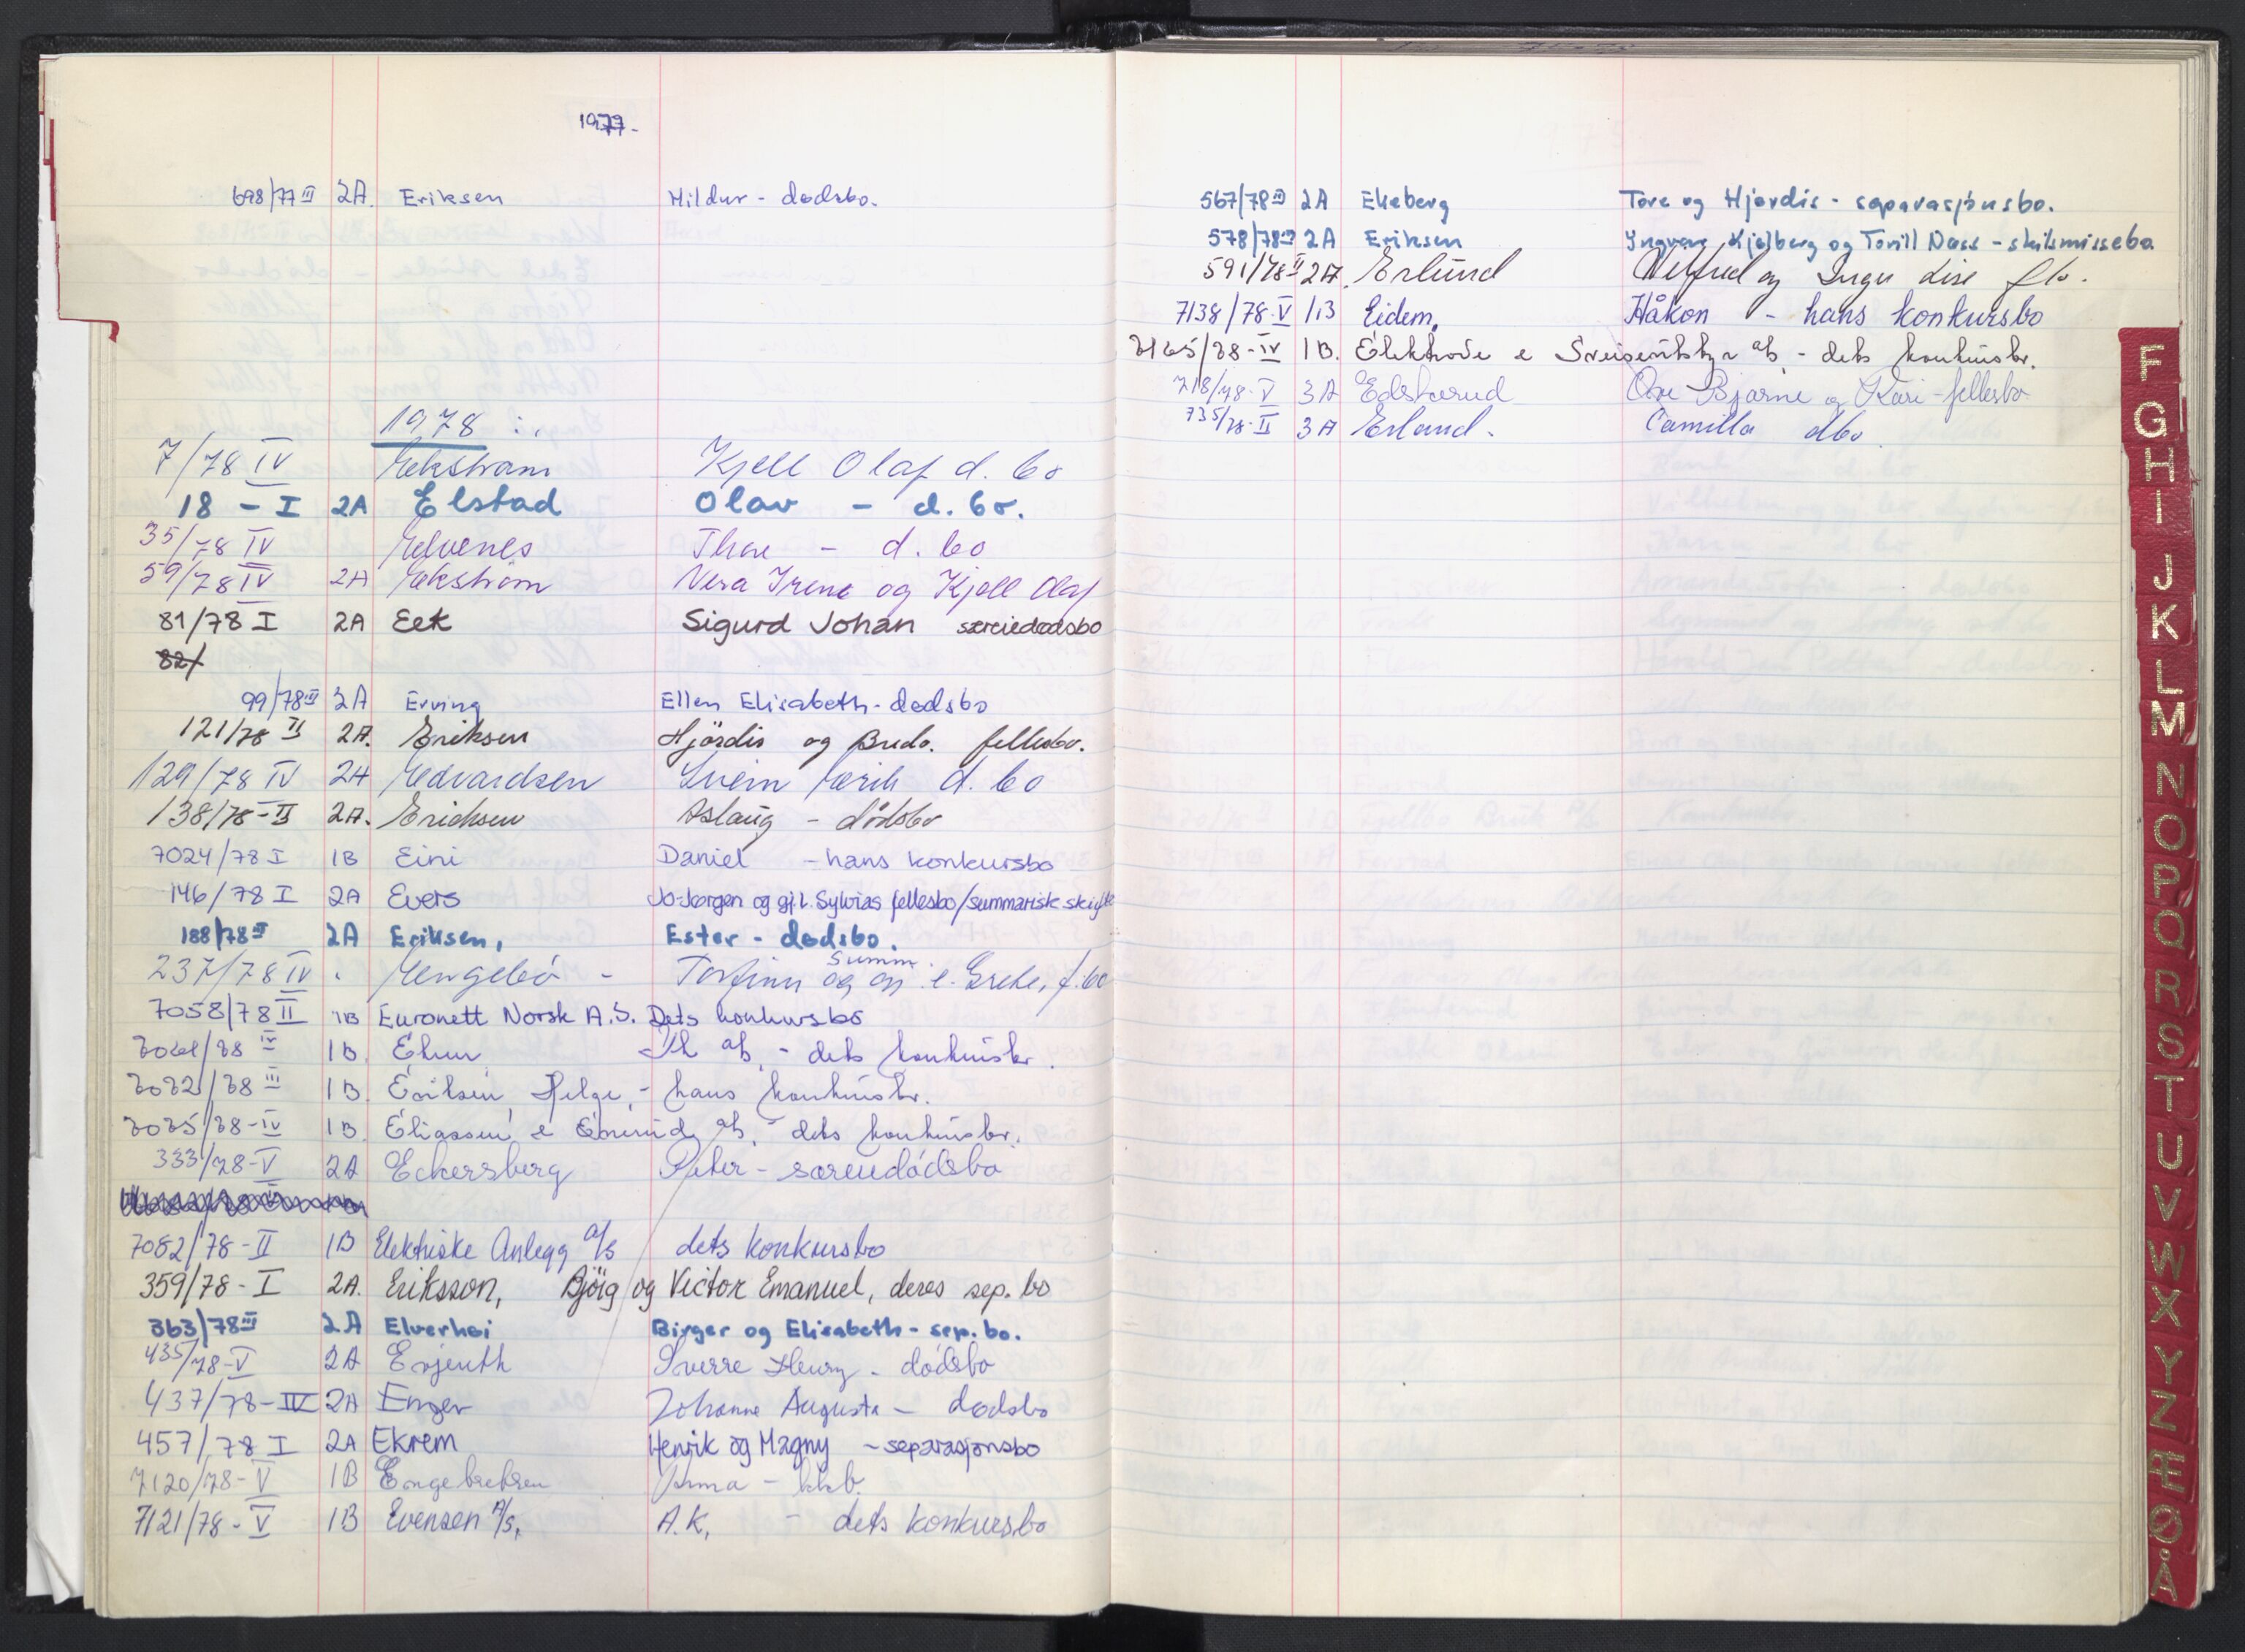 1977-
698/77 III 2A. Eriksen Hildur - dødsbo.
1978 :.
7/78 IV Ekstrøm Kjell Olaf d. bo
18 - I 2A Elstad Olav - d. bo.
35/78 IV Elvenes Thore - d. bo
59/78 IV 2A Ekstrøm Vera Irene og Kjell Olaf
81/78 I 2A Eek Sigurd Johan særeiedødsbo
82/
99/78 III 2A Erving Ellen Elisabeth - dødsbo
121/78 II 2A. Eriksen Hjørdis og Bredo. fellesbo.
129/78 IV 2A Edvardsen Svein Erik d. bo
138/78 - II 2A. Erichsen Aslaug - dødsbo
7024/78 I 1B Eini Daniel - hans konkursbo
146/78 I 2A Evers Jo-Jørgen og gj.l. Sylvias fellesbo/summarisk skifte
188/78 III 2A Eriksen, Ester - dødsbo.
237/78 IV Engebø - Torfinn og gj. e. Grete, f.bo summ.
7058/78 II 1B Euronett Norsk A.S. Dets konkursbo
7061/78 IV 1B. Ekun, Th a/s. - dets konkursbo.
7072/78 III 1B. Eriksen, Helge, - hans konkursbo.
7075/78 - IV 1B. Eliassen & a/s, - dets konkursbo.
333/78 - V 2A Eckersberg Peter - særeiedødsbo
7082/78 - II 1B Elektriske Anlegg a/s dets konkursbo
359/78 - I 2A. Eriksson, Bjørg og Victor Emanuel, deres sep. bo
363/78 III 2A Elverhøi Birger og Elisabeth - sep. bo.
435/78 - V 2A Evjenth Sverre Henry - dødsbo
437/78 - IV 2A Enger Johanne Augusta - dødsbo
457/78 I 2A Ekrem Henrik og Magny - separasjonsbo
7120/78 - V 1B Engebretsen - kkb.
7121/78 - V 1B Evensen A/S, A.K, - dets konkursbo
567/78 III 2A Ekeberg Tore og Hjørdis - separasjonsbo.
578/78 III 2A Eriksen Ingvar Kjølberg og Torill Dass - skilsmissebo
591/78 II 2A. Erlund Wilfred og Inger Lise f.bo.
7138/78 - V 1B Eidem, Håkon - hans konkursbo
7165/78 - IV 1B. Elektrode & Sveiseutstyr a/s - dets konkursbo.
718/78 - V 3A Edskerud Ove Bjarne og Kari - fellesbo
735/78 - II 3A Erland. Camilla dbo.
F
G
H
I
J
K
L
M
N
O
P
Q
R
S
T
U
V
W
X
Y
Z
Æ
Ø
Å